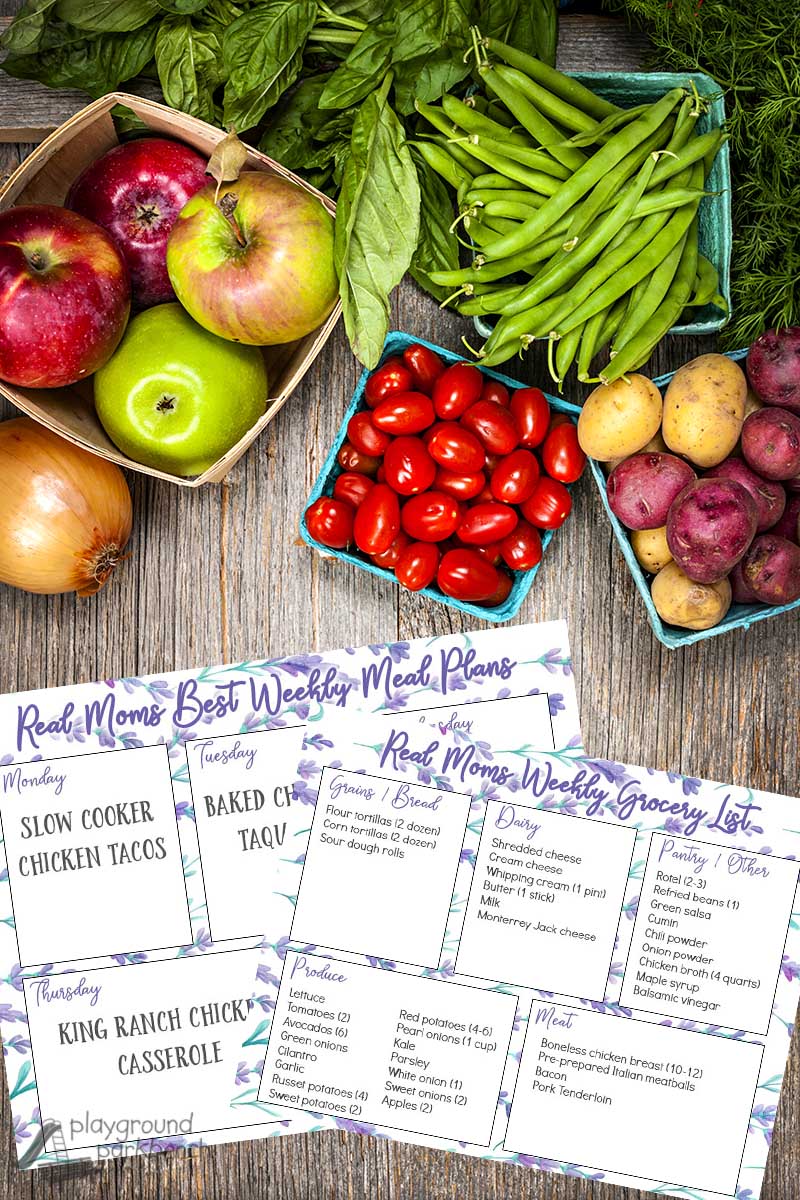 Real Moms Best Weekly Meal Plans
Monday
SLOW COOKER
CHICKEN TACOS
Tuesday
BAKED CH
TAQU
sday
Thursday
KING RANCH CHICK
CASSEROLE
Real Moms Weekly Grocery List
Grains / Bread
Flour tortillas (2 dozen)
Corn tortillas (2 dozen)
Sour dough rolls
Dairy
Shredded cheese
Cream cheese
Whipping cream (1 pint)
Butter (1 stick)
Milk
Monterrey Jack cheese
Pantry / Other
Rotel (2-3)
Refried beans (1)
Green salsa
Cumin
Chili powder
Onion powder
Chicken broth (4 quarts)
Maple syrup
Balsamic vinegar
Produce
Lettuce
Tomatoes (2)
Avocados (6)
Green onions
Cilantro
Garlic
Russet potatoes (4)
Sweet potatoes (2)
Red potatoes (4-6)
Pearl onions (1 cup)
Kale
Parsley
White onion (1)
Sweet onions (2)
Apples (2)
Meat
Boneless chicken breast (10-12)
Pre-prepared Italian meatballs
Bacon
Pork Tenderloin
playground
parkbench